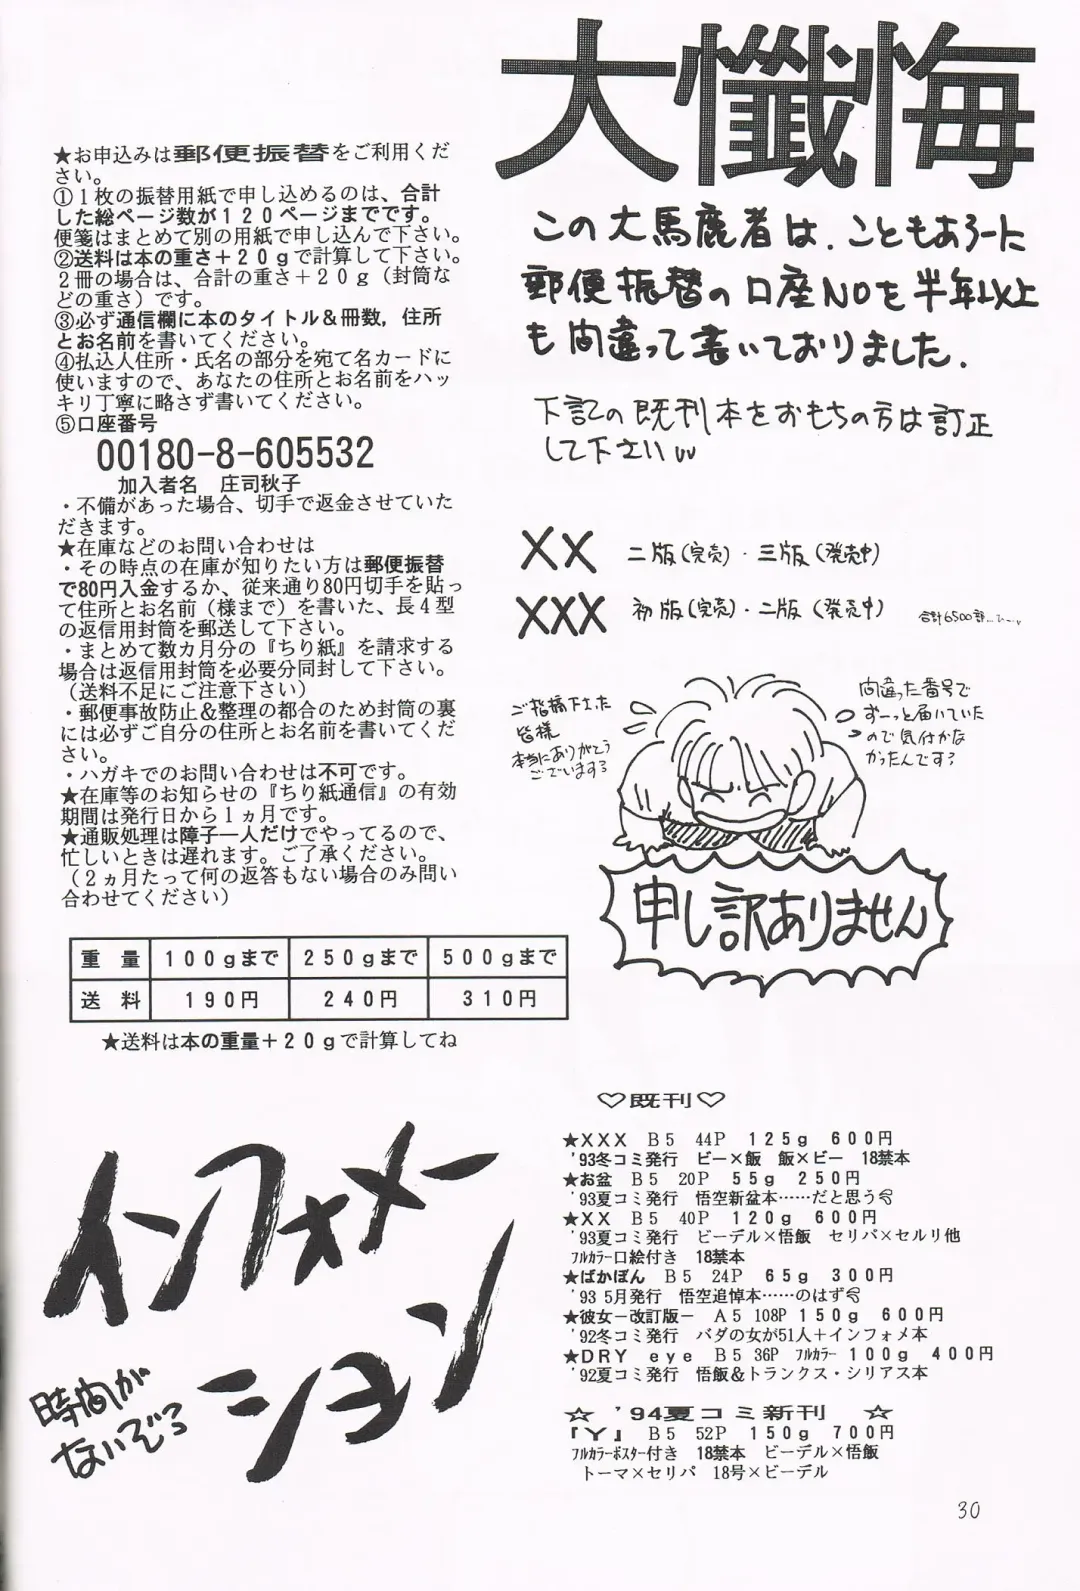 大懺悔
この大馬鹿者は、こともあろーに
郵便振替の口座NOを半年以上
も間違って書いておりました.
下記の既刊本をおもちの方は訂正
して下さい
XX 二版(完売)・三版(発売中)
XXX 初版(完売)・二版(発売中) 合計6500部…
ご指摘下さった
皆様
本当にありがとう
ございますう
間違った番号で
ずーっと届いていた
ので気付かな
かったんですう
申し訳ありません
★お申込みは郵便振替をご利用くだ
さい。
①1枚の振替用紙で申し込めるのは、合計
した総ページ数が120ページまでです。
便箋はまとめて別の用紙で申し込んで下さい。
②送料は本の重さ+20gで計算して下さい。
2冊の場合は、合計の重さ+20g(封筒な
どの重さ)です。
③必ず通信欄に本のタイトル&冊数,住所
とお名前を書いてください。
④払込人住所・氏名の部分を宛て名カードに
使いますので、あなたの住所とお名前をハッ
キリ丁寧に略さず書いてください。
⑤口座番号
00180-8-605532
加入者名 庄司秋子
・不備があった場合、切手で返金させていた
だきます。
★在庫などのお問い合わせは
・その時点の在庫が知りたい方は郵便振替
で80円入金するか、従来通り80円切手を貼っ
て住所とお名前(様まで)を書いた、長4型
の返信用封筒を郵送して下さい。
・まとめて数カ月分の『ちり紙』を請求する
場合は返信用封筒を必要分同封して下さい。
(送料不足にご注意下さい)
・郵便事故防止&整理の都合のため封筒の裏
には必ずご自分の住所とお名前を書いてくだ
さい。
・ハガキでのお問い合わせは不可です。
★在庫等のお知らせの『ちり紙通信』の有効
期間は発行日から1ヵ月です。
★通販処理は障子一人だけでやってるので、
忙しいときは遅れます。ご了承ください。
(2ヵ月たって何の返答もない場合のみ問い
合わせてください)
重 量 100gまで 250gまで 500gまで
送 料 190円 240円 310円
★送料は本の重量+20gで計算してね
インフォメー
ション
時間が
ないぞう
♡既刊♡
★XXX B5 44P 125g 600円
'93冬コミ発行 ビー×飯 飯×ビー 18禁本
★お盆 B5 20P 55g 250円
'93夏コミ発行 悟空新盆本……だと思う
★XX B5 40P 120g 600円
'93夏コミ発行 ビーデル×悟飯 セリパ×セルリ他
フルカラー口絵付き 18禁本
★ばかぼん B5 24P 65g 300円
'93 5月発行 悟空追悼本……のはず
★彼女-改訂版- A5 108P 150g 600円
'92冬コミ発行 バダの女が51人+インフォメ本
★DRY eye B5 36P フルカラー 100g 400円
'92夏コミ発行 悟飯&トランクス・シリアス本
☆ '94夏コミ新刊 ☆
『Y』 B5 52P 150g 700円
フルカラーポスター付き 18禁本 ビーデル×悟飯
トーマ×セリパ 18号×ビーデル
30